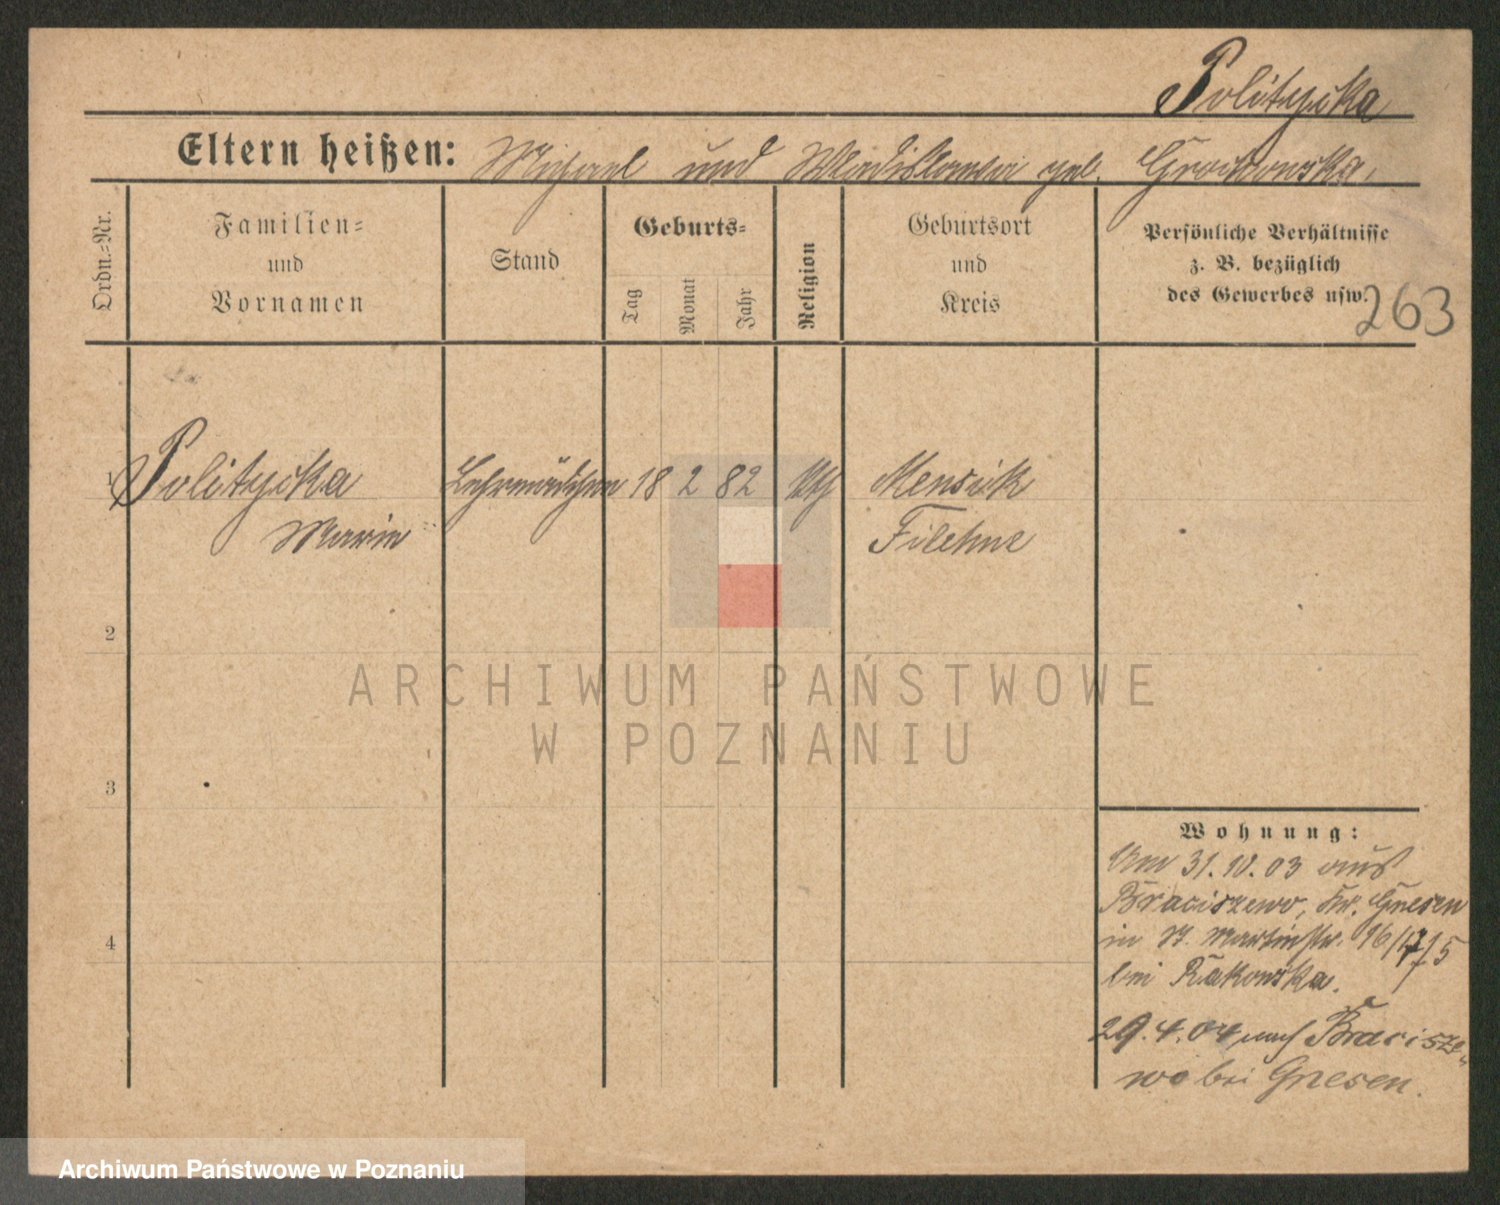 Politycka
Eltern heißen: Michael und Wladislawa geb. Grochowska,
Ordn.-Nr.
Familien- und Vornamen
Stand
Geburts-
Tag
Monat
Jahr
Religion
Geburtsort und Kreis
Persönliche Verhältnisse
z. B. bezüglich
des Gewerbes usw.
263
1 Politycka Lehrmädchen 18 2 82 kth Mensik
Marie Filehne
2
3
4
Wohnung:
Am 31.10.03 aus
Braciszewo, Kr. Gnesen
in St. Martinstr. 16/17/5
bei Rakowska.
29.4.04 nach Bracisze-
wo bei Gnesen.
ARCHIWUM PAŃSTWOWE
W POZNANIU
Archiwum Państwowe w Poznaniu